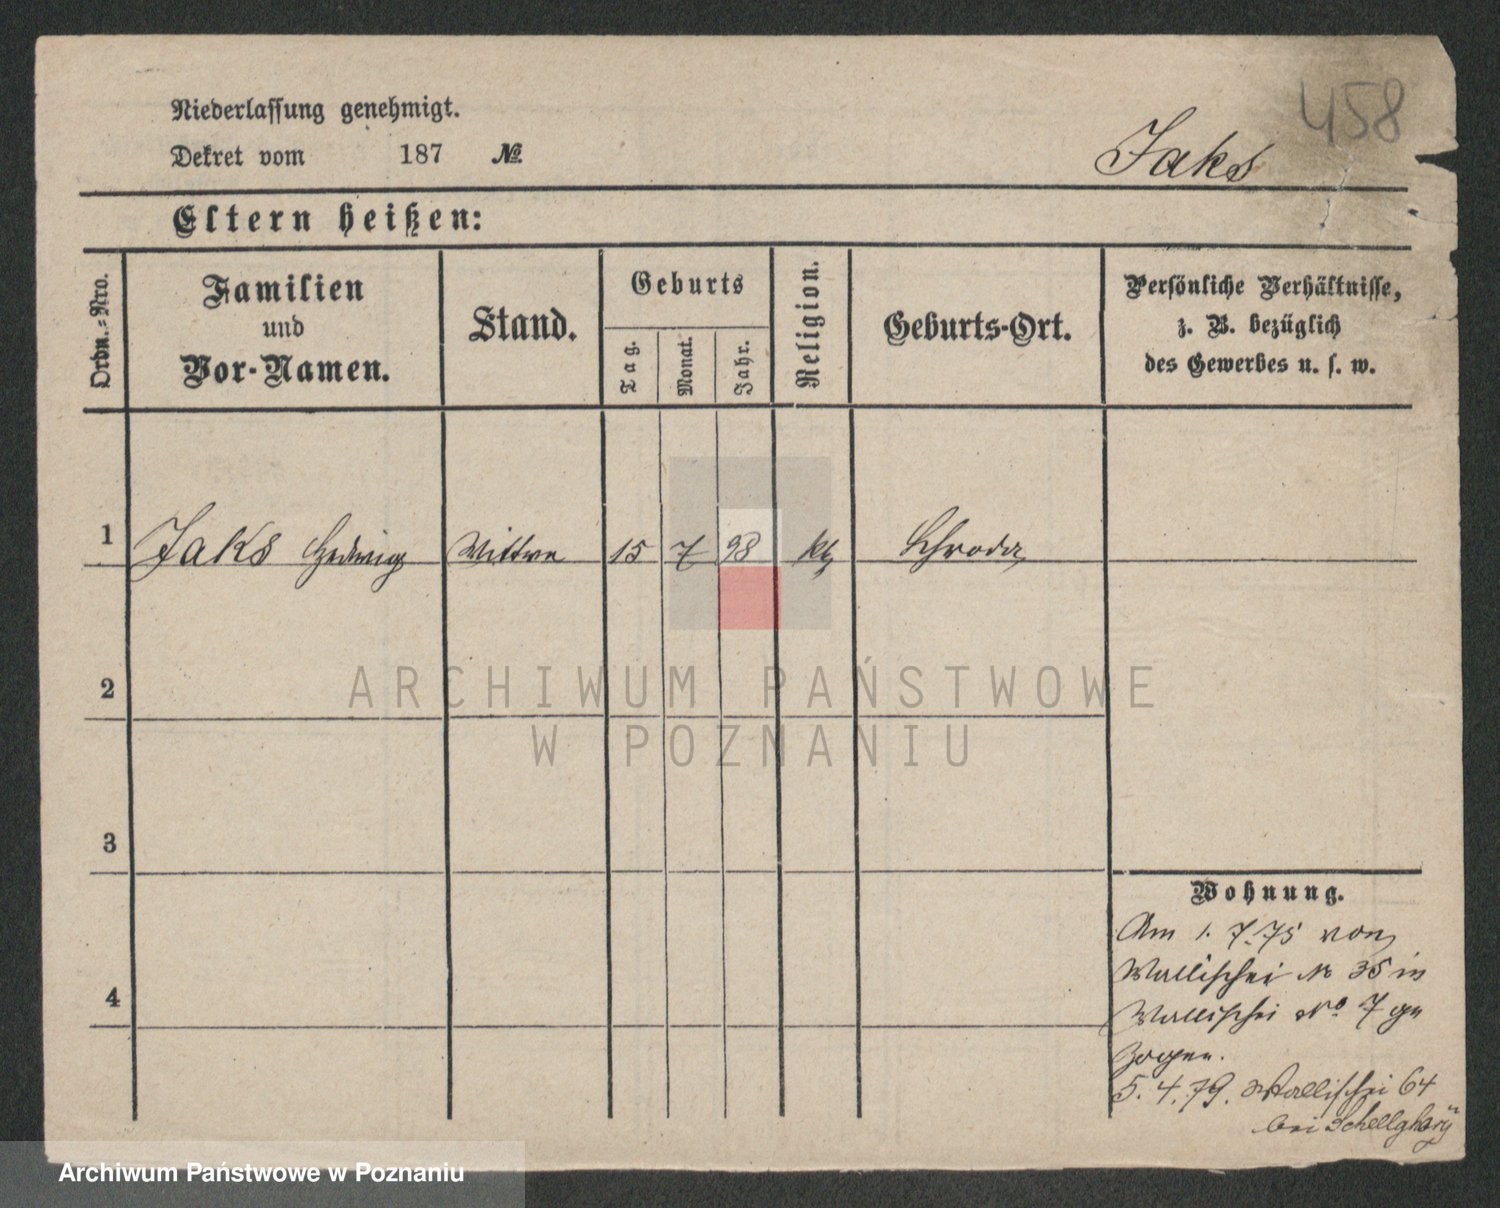 458
Niederlassung genehmigt.
Dekret vom 187 №
Jaks
Eltern heißen:
Ordn.-Nro.
Familien
und
Vor-Namen.
Stand.
Geburts
Tag.
Monat.
Jahr.
Religion.
Geburts-Ort.
Persönliche Verhältnisse,
z. B. bezüglich
des Gewerbes u. s. w.
1 Jaks Hedwig Wittwe 15 7 98 kth Schroda
2
3
4
Wohnung.
Am 1. 7. 75 von
Wallischei No 35 in
Wallischei No. 7 ge
zogen.
5. 4. 79. Wallischei 64
bei
ARCHIWUM PAŃSTWOWE
W POZNANIU
Archiwum Państwowe w Poznaniu